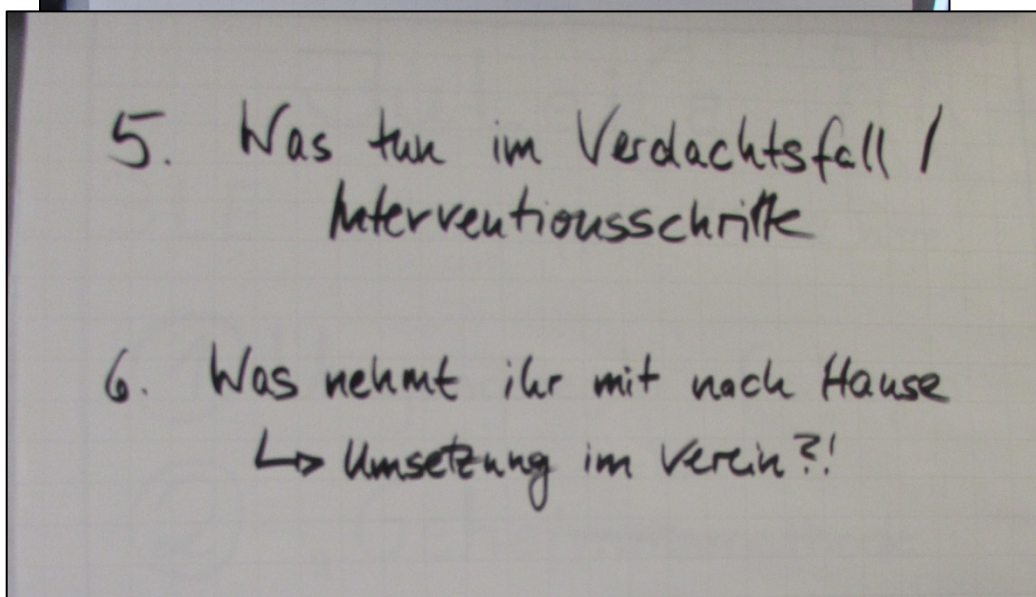 5. Was tun im Verdachtsfall /
Interventionsschritte
6. Was nehmt ihr mit nach Hause
↳ Umsetzung im Verein?!